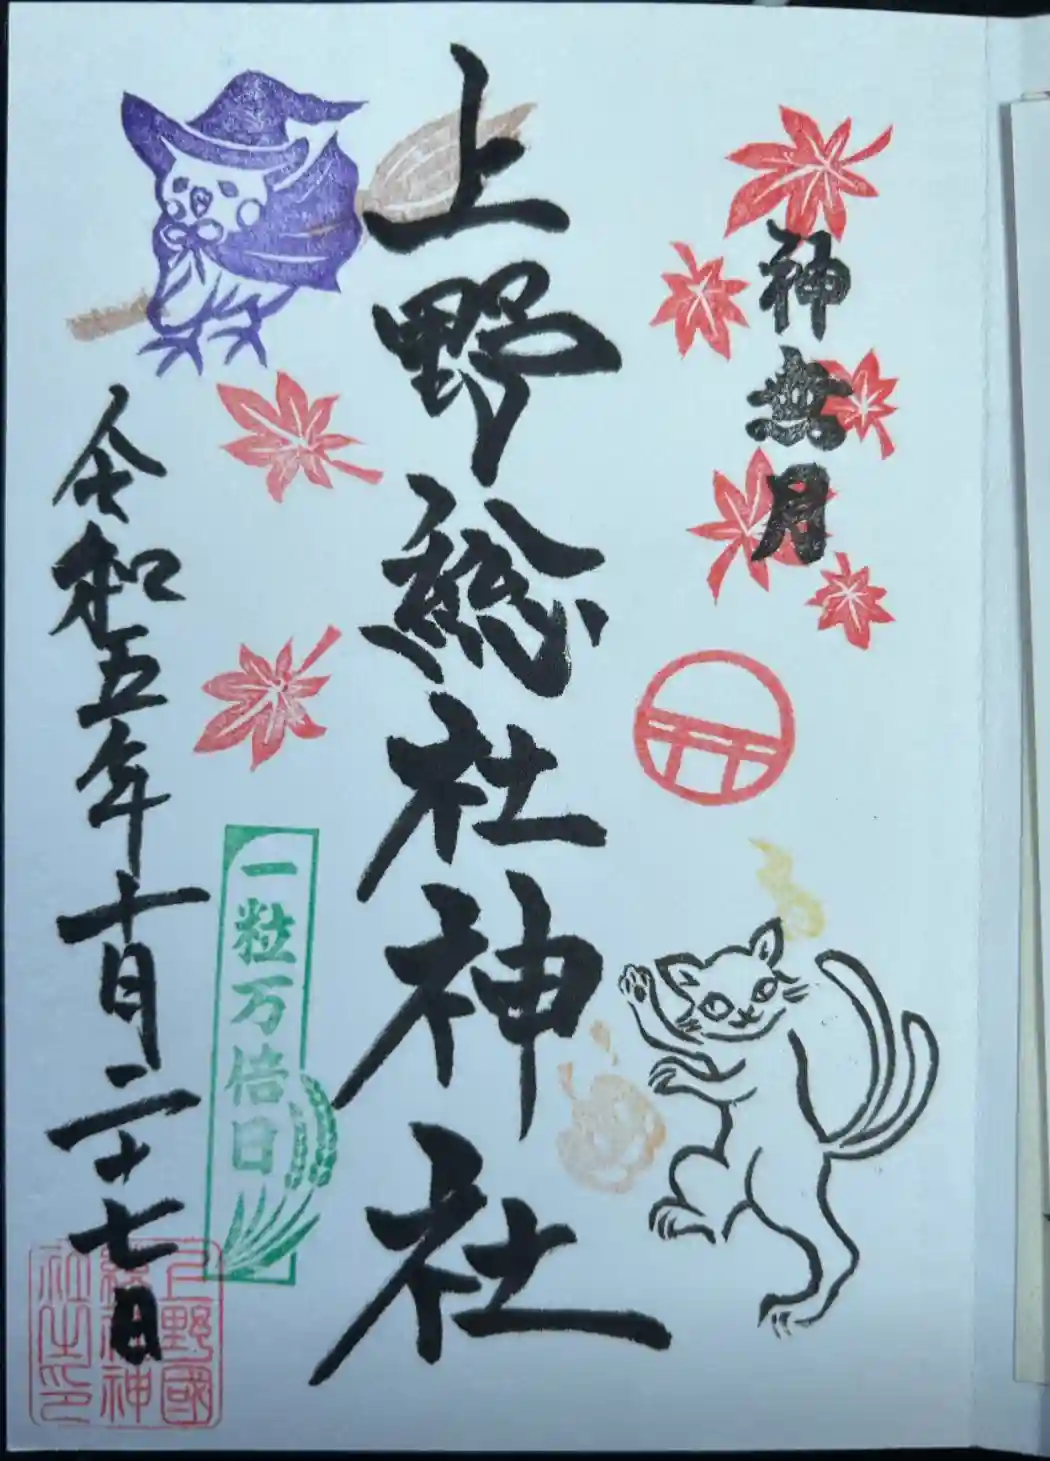 神無月
上野総社神社
一粒万倍日
令和五年十月二十七日
上野國
総社神
社之印